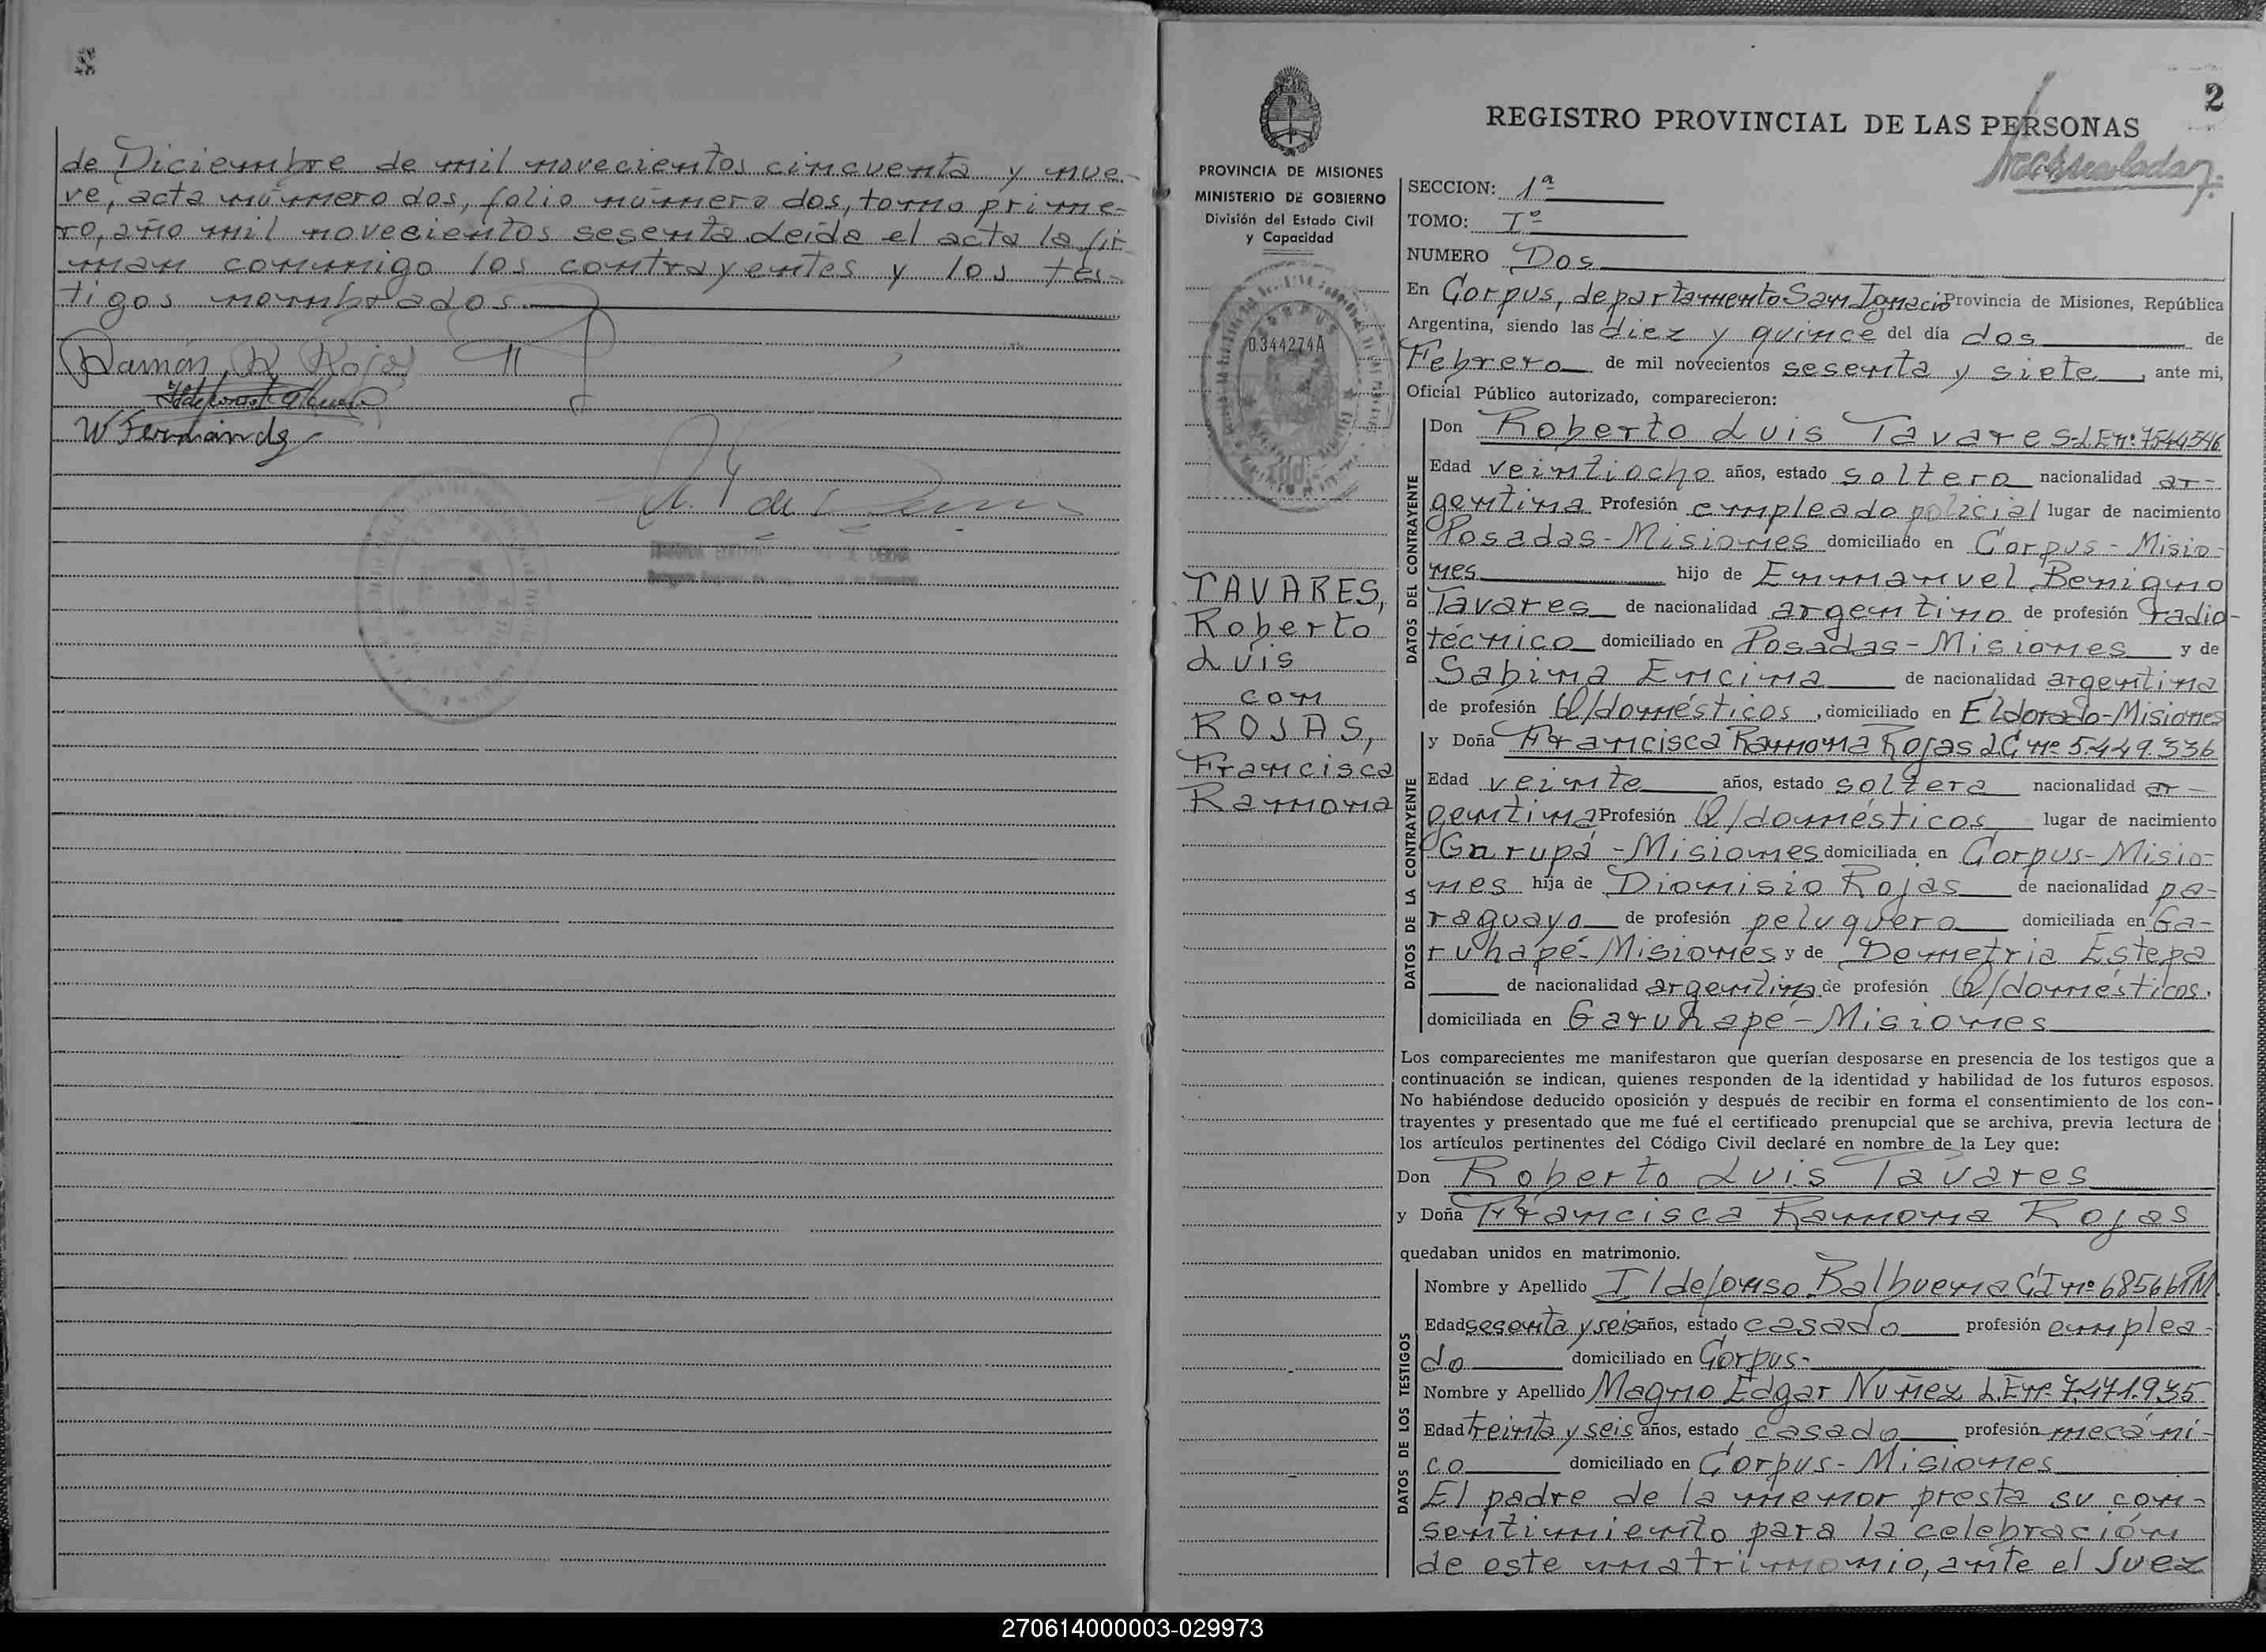 de Diciembre de mil novecientos cincuenta y nue-
ve, acta número dos, folio número dos, tomo prime-
ro, año mil novecientos sesenta. Leída el acta la fir-
man conmigo los contrayentes y los tes-
tigos nombrados.
Ramón R Rojas
W Fernández
2
REGISTRO PROVINCIAL DE LAS PERSONAS
PROVINCIA DE MISIONES
MINISTERIO DE GOBIERNO
División del Estado Civil
y Capacidad
0.344274A
TAVARES,
Roberto
Luis
con
ROJAS,
Francisca
Ramona
SECCION: 1ª
TOMO: Iº
NUMERO Dos
En Corpus, departamento San Ignacio Provincia de Misiones, República
Argentina, siendo las diez y quince del día dos de
Febrero de mil novecientos sesenta y siete, ante mi,
Oficial Público autorizado, comparecieron:
DATOS DEL CONTRAYENTE
Don Roberto Luis Tavares-L.E nº 7544346
Edad veintiocho años, estado soltero nacionalidad ar-
gentina Profesión empleado policial lugar de nacimiento
Posadas-Misiones domiciliado en Corpus-Misio-
nes hijo de Emmanuel Benigno
Tavares de nacionalidad argentino de profesión radio-
técnico domiciliado en Posadas-Misiones y de
Sabina Encina de nacionalidad argentina
de profesión Q/domésticos, domiciliado en Eldorado-Misiones
DATOS DE LA CONTRAYENTE
y Doña Francisca Ramona Rojas L.C nº 5.449.336
Edad veinte años, estado soltera nacionalidad ar-
gentina Profesión Q/domésticos lugar de nacimiento
Garupá-Misiones domiciliada en Corpus-Misio-
nes hija de Dionisio Rojas de nacionalidad pa-
raguayo de profesión peluquero domiciliada en Ga-
ruhapé-Misiones y de Demetria Estepa
de nacionalidad argentina de profesión Q/domésticos.
domiciliada en Garuhapé-Misiones
Los comparecientes me manifestaron que querían desposarse en presencia de los testigos que a
continuación se indican, quienes responden de la identidad y habilidad de los futuros esposos.
No habiéndose deducido oposición y después de recibir en forma el consentimiento de los con-
trayentes y presentado que me fué el certificado prenupcial que se archiva, previa lectura de
los artículos pertinentes del Código Civil declaré en nombre de la Ley que:
Don Roberto Luis Tavares
y Doña Francisca Ramona Rojas
quedaban unidos en matrimonio.
DATOS DE LOS TESTIGOS
Nombre y Apellido Ildefonso Balbuena C.I nº
Edad sesenta y seis años, estado casado profesión emplea-
do domiciliado en Corpus-
Nombre y Apellido Magno Edgar Nuñez L.E nº 7.471.935
Edad treinta y seis años, estado casado profesión mecáni-
co domiciliado en Corpus-Misiones
El padre de la menor presta su con-
sentimiento para la celebración
de este matrimonio, ante el Juez
270614000003-029973